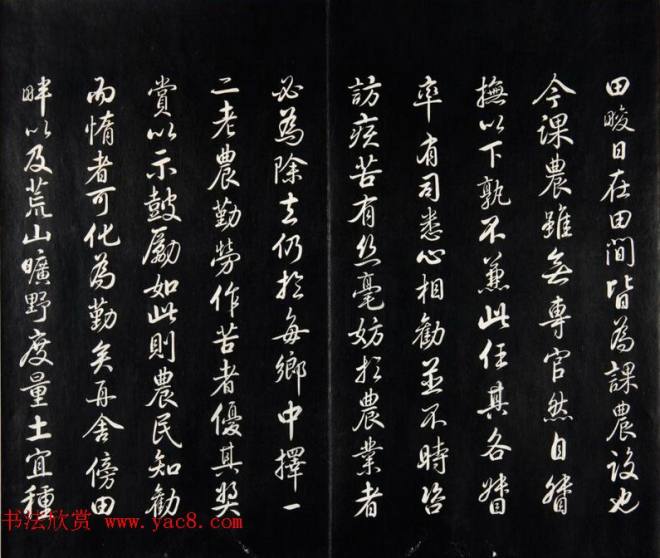 田畯日在田間皆為課農設也
今課農雖無專官然自督
撫以下孰不兼此任其各督
率有司悉心相勸並不時咨
訪疾苦有絲毫妨於農業者
必為除去仍於每鄉中擇一
二老農勤勞作苦者優其獎
賞以示鼓勵如此則農民知勸
而惰者可化為勤矣再舍傍田
畔以及荒山曠野度量土宜種
书法欣赏 www.yac8.com